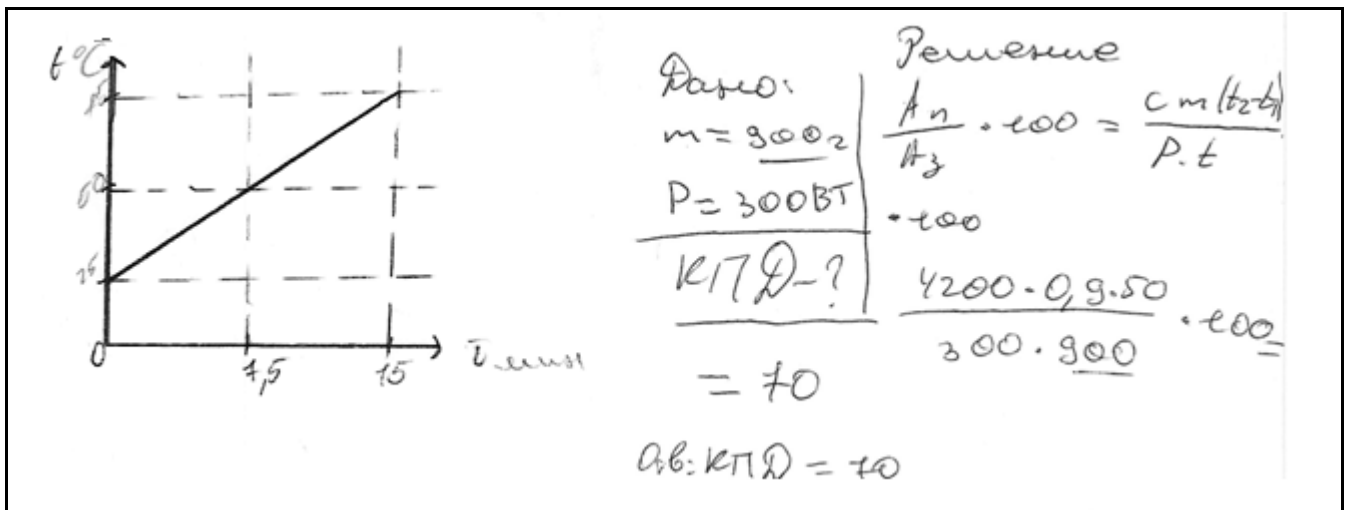 t °C
60
0
7,5
15
τ, мин
Дано:
m = 900г
P = 300Вт
КПД - ?
Решение
Aп/Aз · 100 = c m (t₂-t₁)/P·t
· 100
4200 · 0,9 · 50/300 · 900 · 100 =
= 70
Ов: КПД = 70